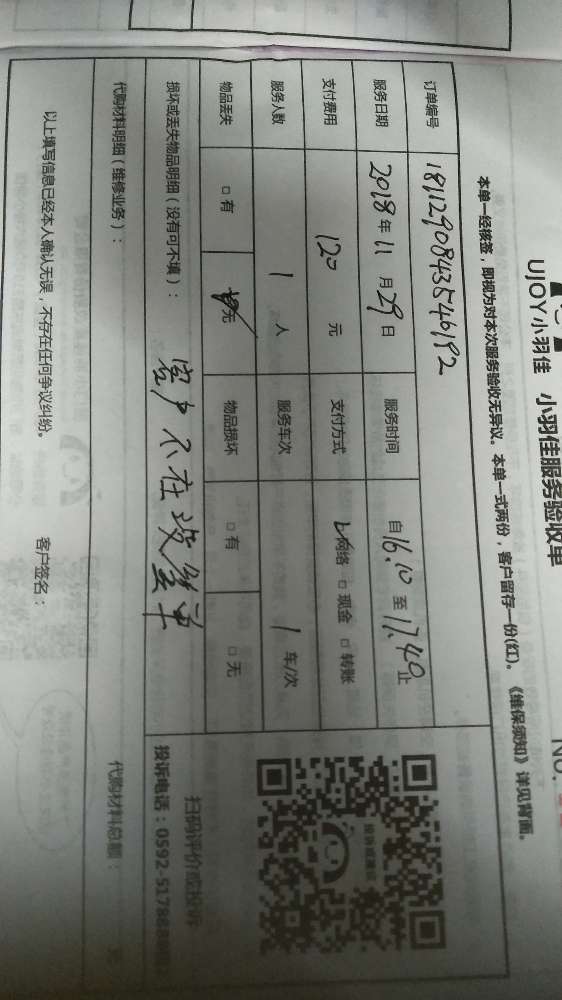 UJOY小羽佳 小羽佳服务验收单
No.
本单一经核签，即视为对本次服务验收无异议。本单一式两份，客户留存一份(红)。《维保须知》详见背面。
订单编号 1811290843546192
服务日期 2018年11月29日 服务时间 自16.10至17.40止
支付费用 120元 支付方式 ☑网络 □现金 □转账
服务人数 1人 服务车次 1车/次
物品丢失 □有 ☑无 物品损坏 □有 □无
损坏或丢失物品明细（没有可不填）：
客户不在没签单
代购材料明细（维修业务）：
代购材料总额： 元
以上填写信息已经本人确认无误，不存在任何争议纠纷。 客户签名：
投诉或建议
扫码评价或投诉
投诉电话：0592-5178